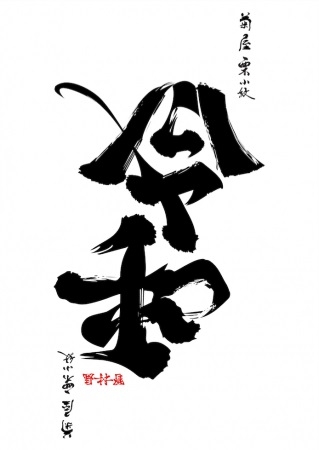 菊屋 栗小紋
令和
菊屋 栗小紋